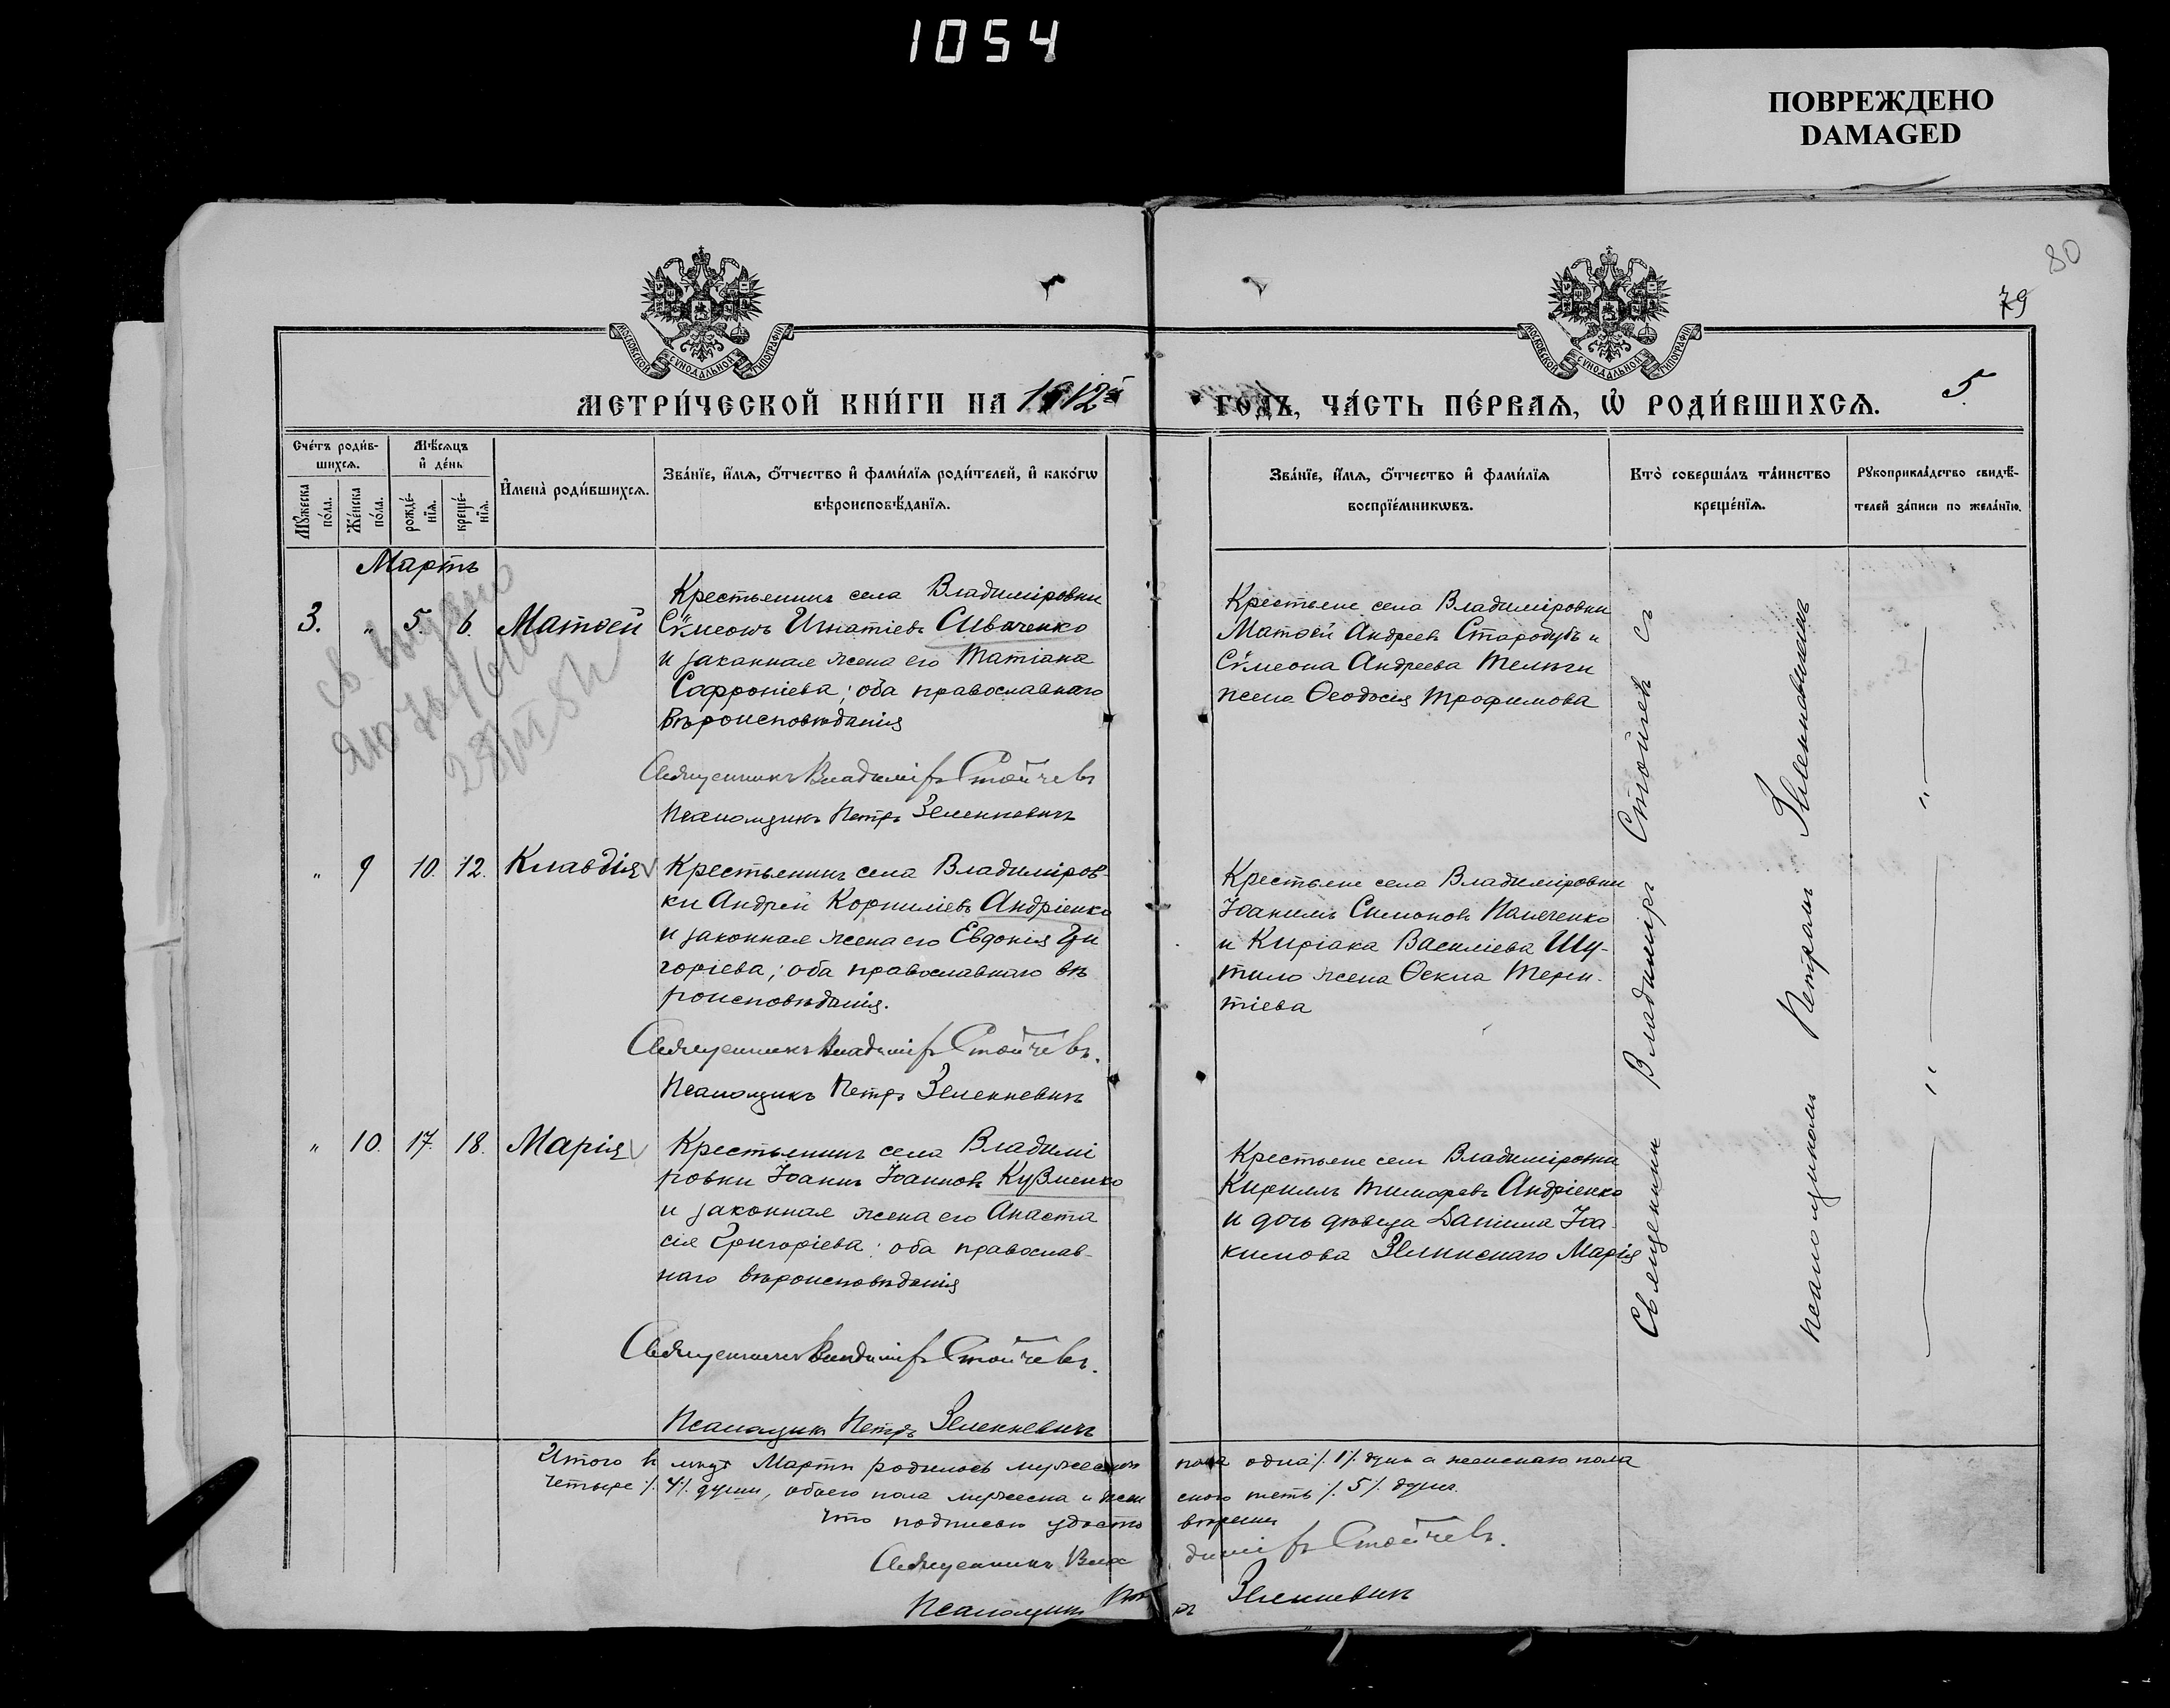 1054
ПОВРЕЖДЕНО
DAMAGED
80
79
МОСКОВСКОЙ СѴНОДАЛЬНОЙ ТИПОГРАФІИ
МОСКОВСКОЙ СѴНОДАЛЬНОЙ ТИПОГРАФІИ
МЕТРИ́ЧЕСКОЙ КНИ́ГИ НА 1912й
ГОДЪ, ЧА́СТЬ ПЕ́РВАѦ, Ѡ҆ РОДИ́ВШИХСѦ. 5.
Сче́тъ роди́в-
шихсѧ.
Мѣ́сѧцъ
и҆ де́нь
Мꙋ́жеска по́ла.
Же́нска по́ла.
рожде́-нїѧ.
креще́-нїѧ.
И҆мена̀ роди́вшихсѧ.
Зва́нїе, и҆́мѧ, ѻ҆́тчество и҆ фами́лїѧ роди́телей, и҆ како́гѡ
вѣроисповѣ́данїѧ.
Зва́нїе, и҆́мѧ, ѻ҆́тчество и҆ фами́лїѧ
воспрїе́мникѡвъ.
Кто̀ соверша́лъ та́инство
креще́нїѧ.
Рꙋкоприкла́дство свидѣ́-
телей за́писи по жела́нїю.
Мартъ
3. " 5. 6. Матѳей
Крестьянинъ села Владиміровки
Сѵмеонъ Игнатіевъ Иваченко
и законная жена его Татіана
Софроніева; оба православнаго
вѣроисповѣданія
Священникъ Владиміръ Стойчевъ
Псаломщикъ Петръ Зеленкевичъ
Крестьяне села Владиміровки
Матѳей Андреевъ Стародубъ и
Сѵмеона Андреева Телыги
жена Ѳеодосія Трофимова
" 9 10. 12. Клавдія
Крестьянинъ села Владиміров-
ки Андрей Корниліевъ Андріенко
и законная жена его Евдокія Гри
горіева; оба православнаго вѣ
роисповѣданія.
Священникъ Владиміръ Стойчевъ.
Псаломщикъ Петръ Зеленкевичъ
Крестьяне села Владиміровки
Іоакимъ Симоновъ
и Киріака Василіева Шу-
тыло жена Ѳекла Терен-
тіева
" 10. 17. 18. Марія
Крестьянинъ села Владимі
ровки Іоаннъ Іоанновъ Кузменко
и законная жена его Анаста
сія Григоріева: оба православ-
наго вѣроисповѣданія
Священникъ Владиміръ Стойчевъ.
Псаломщикъ Петръ Зеленкевичъ
Крестьяне села Владиміровки
Кириллъ Тимофеевъ Андріенко
и дочь дѣвица Даніила Іоа-
кимова Зелинскаго Марія
Священникъ Владиміръ Стойчевъ съ
псаломщикомъ Петромъ Зеленкевичемъ
Итого въ м-цѣ Мартѣ родилось мужескаго пола одна /.1/. душа а женскаго пола
четыре /.4/. души, обоего пола мужеска и женскаго пять /.5/. душъ.
Что подписью удостовѣряемъ
Священникъ Владиміръ Стойчевъ.
Псаломщикъ Петръ Зеленкевичъ